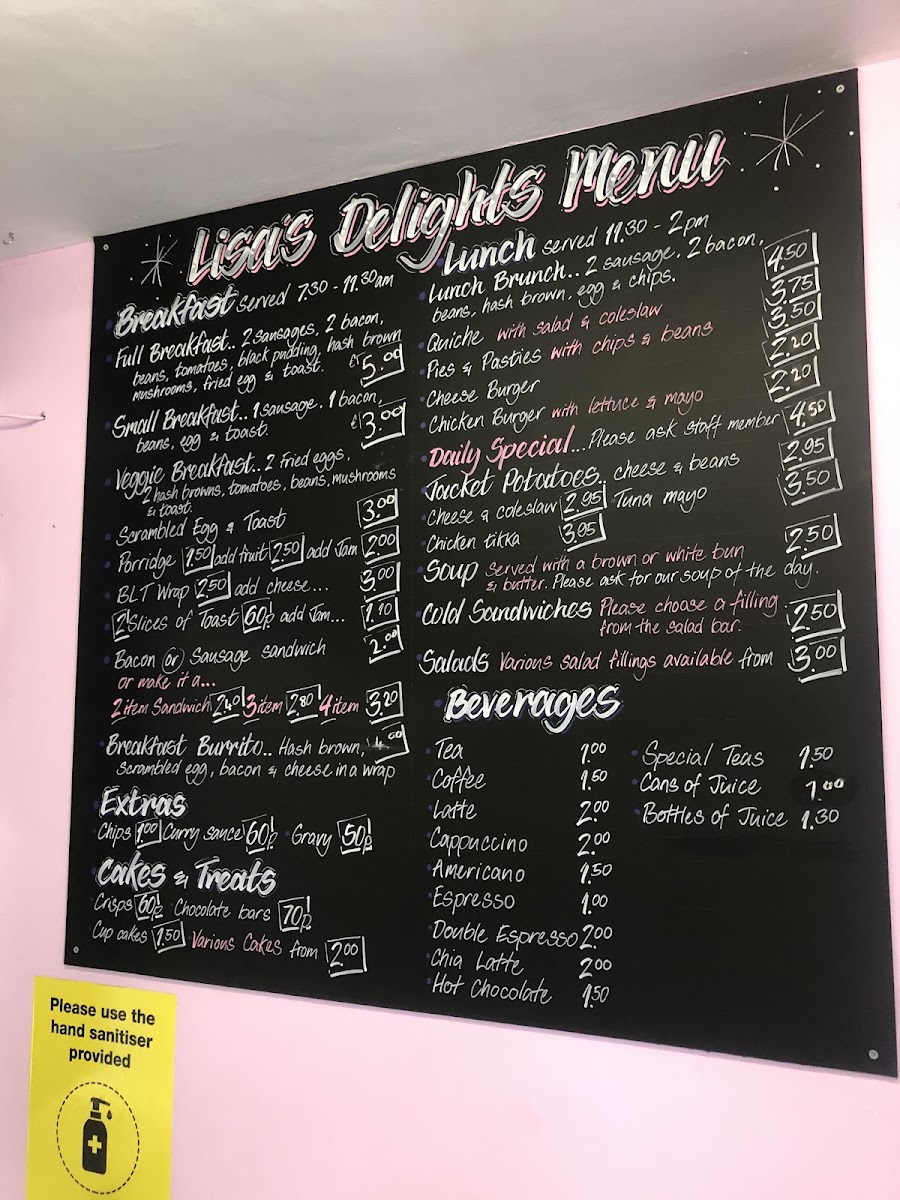 Lisa's Delights Menu
Breakfast served 7.30 - 11.30am
Full Breakfast.. 2 sausages, 2 bacon,
beans, tomatoes, black pudding, hash brown
mushrooms, fried egg & toast. £5.00
Small Breakfast.. 1 sausage, 1 bacon,
beans, egg & toast. £3.00
Veggie Breakfast.. 2 fried eggs,
2 hash browns, tomatoes, beans, mushrooms
& toast.
Scrambled Egg & Toast 3.00
Porridge 1.50 add fruit 2.50 add Jam 2.00
BLT Wrap 2.50 add cheese... 3.00
2 Slices of Toast 60p add Jam... 1.10
Bacon or Sausage sandwich 2.00
or make it a...
2 item Sandwich 2.40 3 item 2.80 4 item 3.20
Breakfast Burrito.. Hash brown, 4.00
Scrambled egg, bacon & cheese in a wrap
Extras
Chips 1.00 Curry sauce 60p Gravy 50p
Cakes & Treats
Crisps 60p Chocolate bars 70p
Cup cakes 1.50 Various Cakes from 2.00
Lunch served 11.30 - 2pm
Lunch Brunch.. 2 sausage, 2 bacon,
beans, hash brown, egg & chips. 4.50
Quiche with salad & coleslaw 3.75
Pies & Pasties with chips & beans 3.50
Cheese Burger 2.20
Chicken Burger with lettuce & mayo 2.20
Daily Special...Please ask staff member 4.50
Jacket Potatoes.. cheese & beans 2.95
Cheese & coleslaw 2.95 Tuna mayo 3.50
Chicken tikka 3.95
Soup served with a brown or white bun 2.50
& butter. Please ask for our soup of the day.
Cold Sandwiches Please choose a filling
from the salad bar. 2.50
Salads Various salad fillings available from 3.00
Beverages
Tea 1.00
Coffee 1.50
Latte 2.00
Cappuccino 2.00
Americano 1.50
Espresso 1.00
Double Espresso 2.00
Chia Latte 2.00
Hot Chocolate 1.50
Special Teas 1.50
Cans of Juice 1.00
Bottles of Juice 1.30
Please use the
hand sanitiser
provided